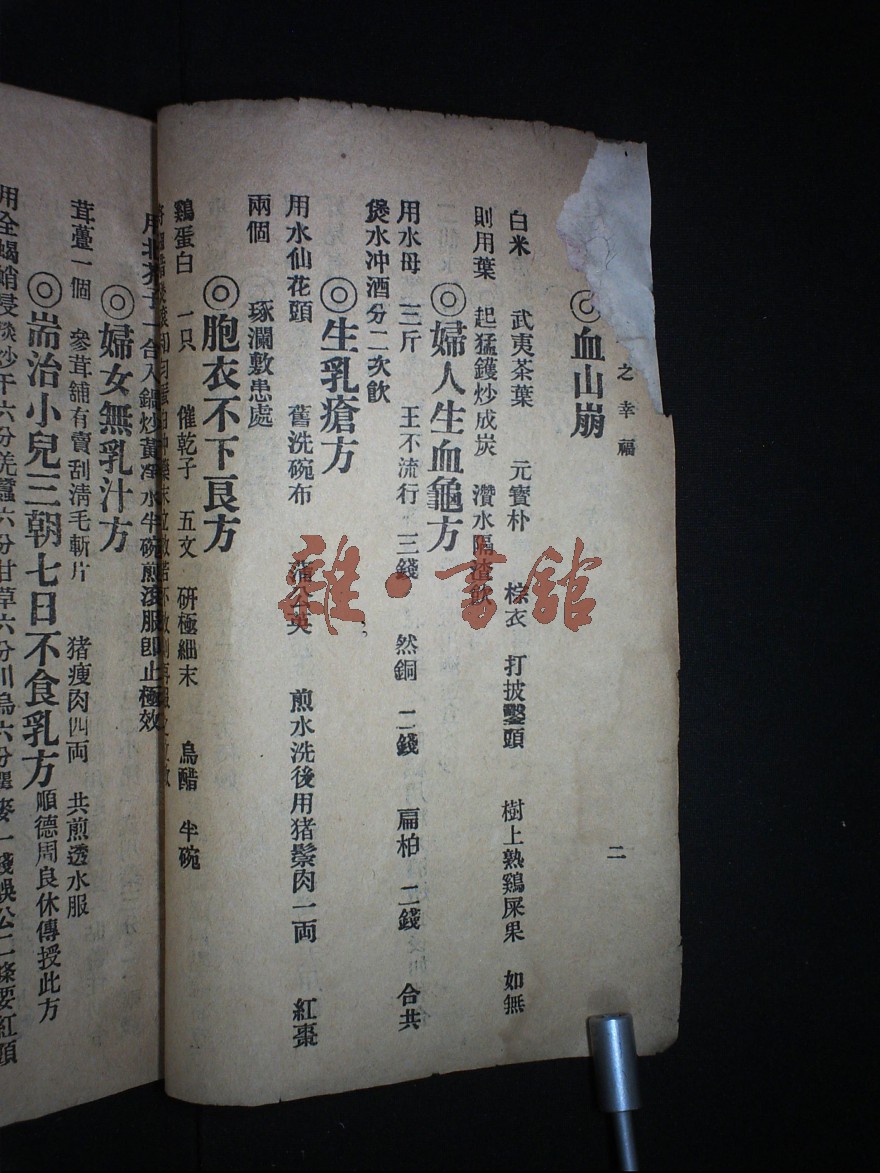 之幸福
二
◎血山崩
白米 武夷茶葉 元寶朴 棕衣 打披鑿頭 樹上熟鷄屎果 如無
則用葉 起猛鑊炒成炭 瀵水隔渣飲
◎婦人生血龜方
用水母 三斤 王不流行 三錢 然銅 二錢 扁柏 二錢 合共
煲水冲酒分二次飲
◎生乳瘡方
用水仙花頭 舊洗碗布 蒲公英 煎水洗後用猪鬃肉一両 紅棗
兩個 琢瀾敷患處
◎胞衣不下良方
鷄蛋白 一只 催乾子 五文 研極細末 烏醋 半碗
合入鍋炒黃冲水半碗煎滾服即止極效
◎婦女無乳汁方
茸蔓一個 參茸舖有賣刮淸毛斬片 猪瘦肉四両 共煎透水服
◎耑治小兒三朝七日不食乳方 順德周良休傳授此方
用全蝎蛸 炒干六分羌蠶六分甘草六分川烏六分 一錢蜈公二條要紅頭
雜·書館